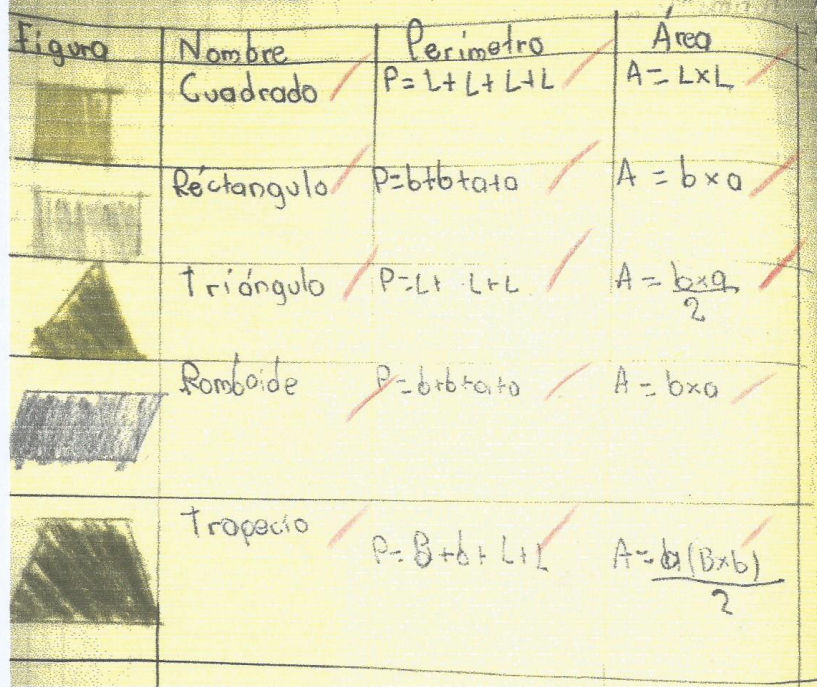 Figura Nombre Perimetro Área
Cuadrado P= L+ L+ L+L A= L×L
Réctangulo P=b+b+a+a A = b×a
Triángulo P=L+ L+L A = b×a
2
Romboide P=b+b+a+a A= b×a
Trapecio P= B+b+ L+L A= a(B×b)
2